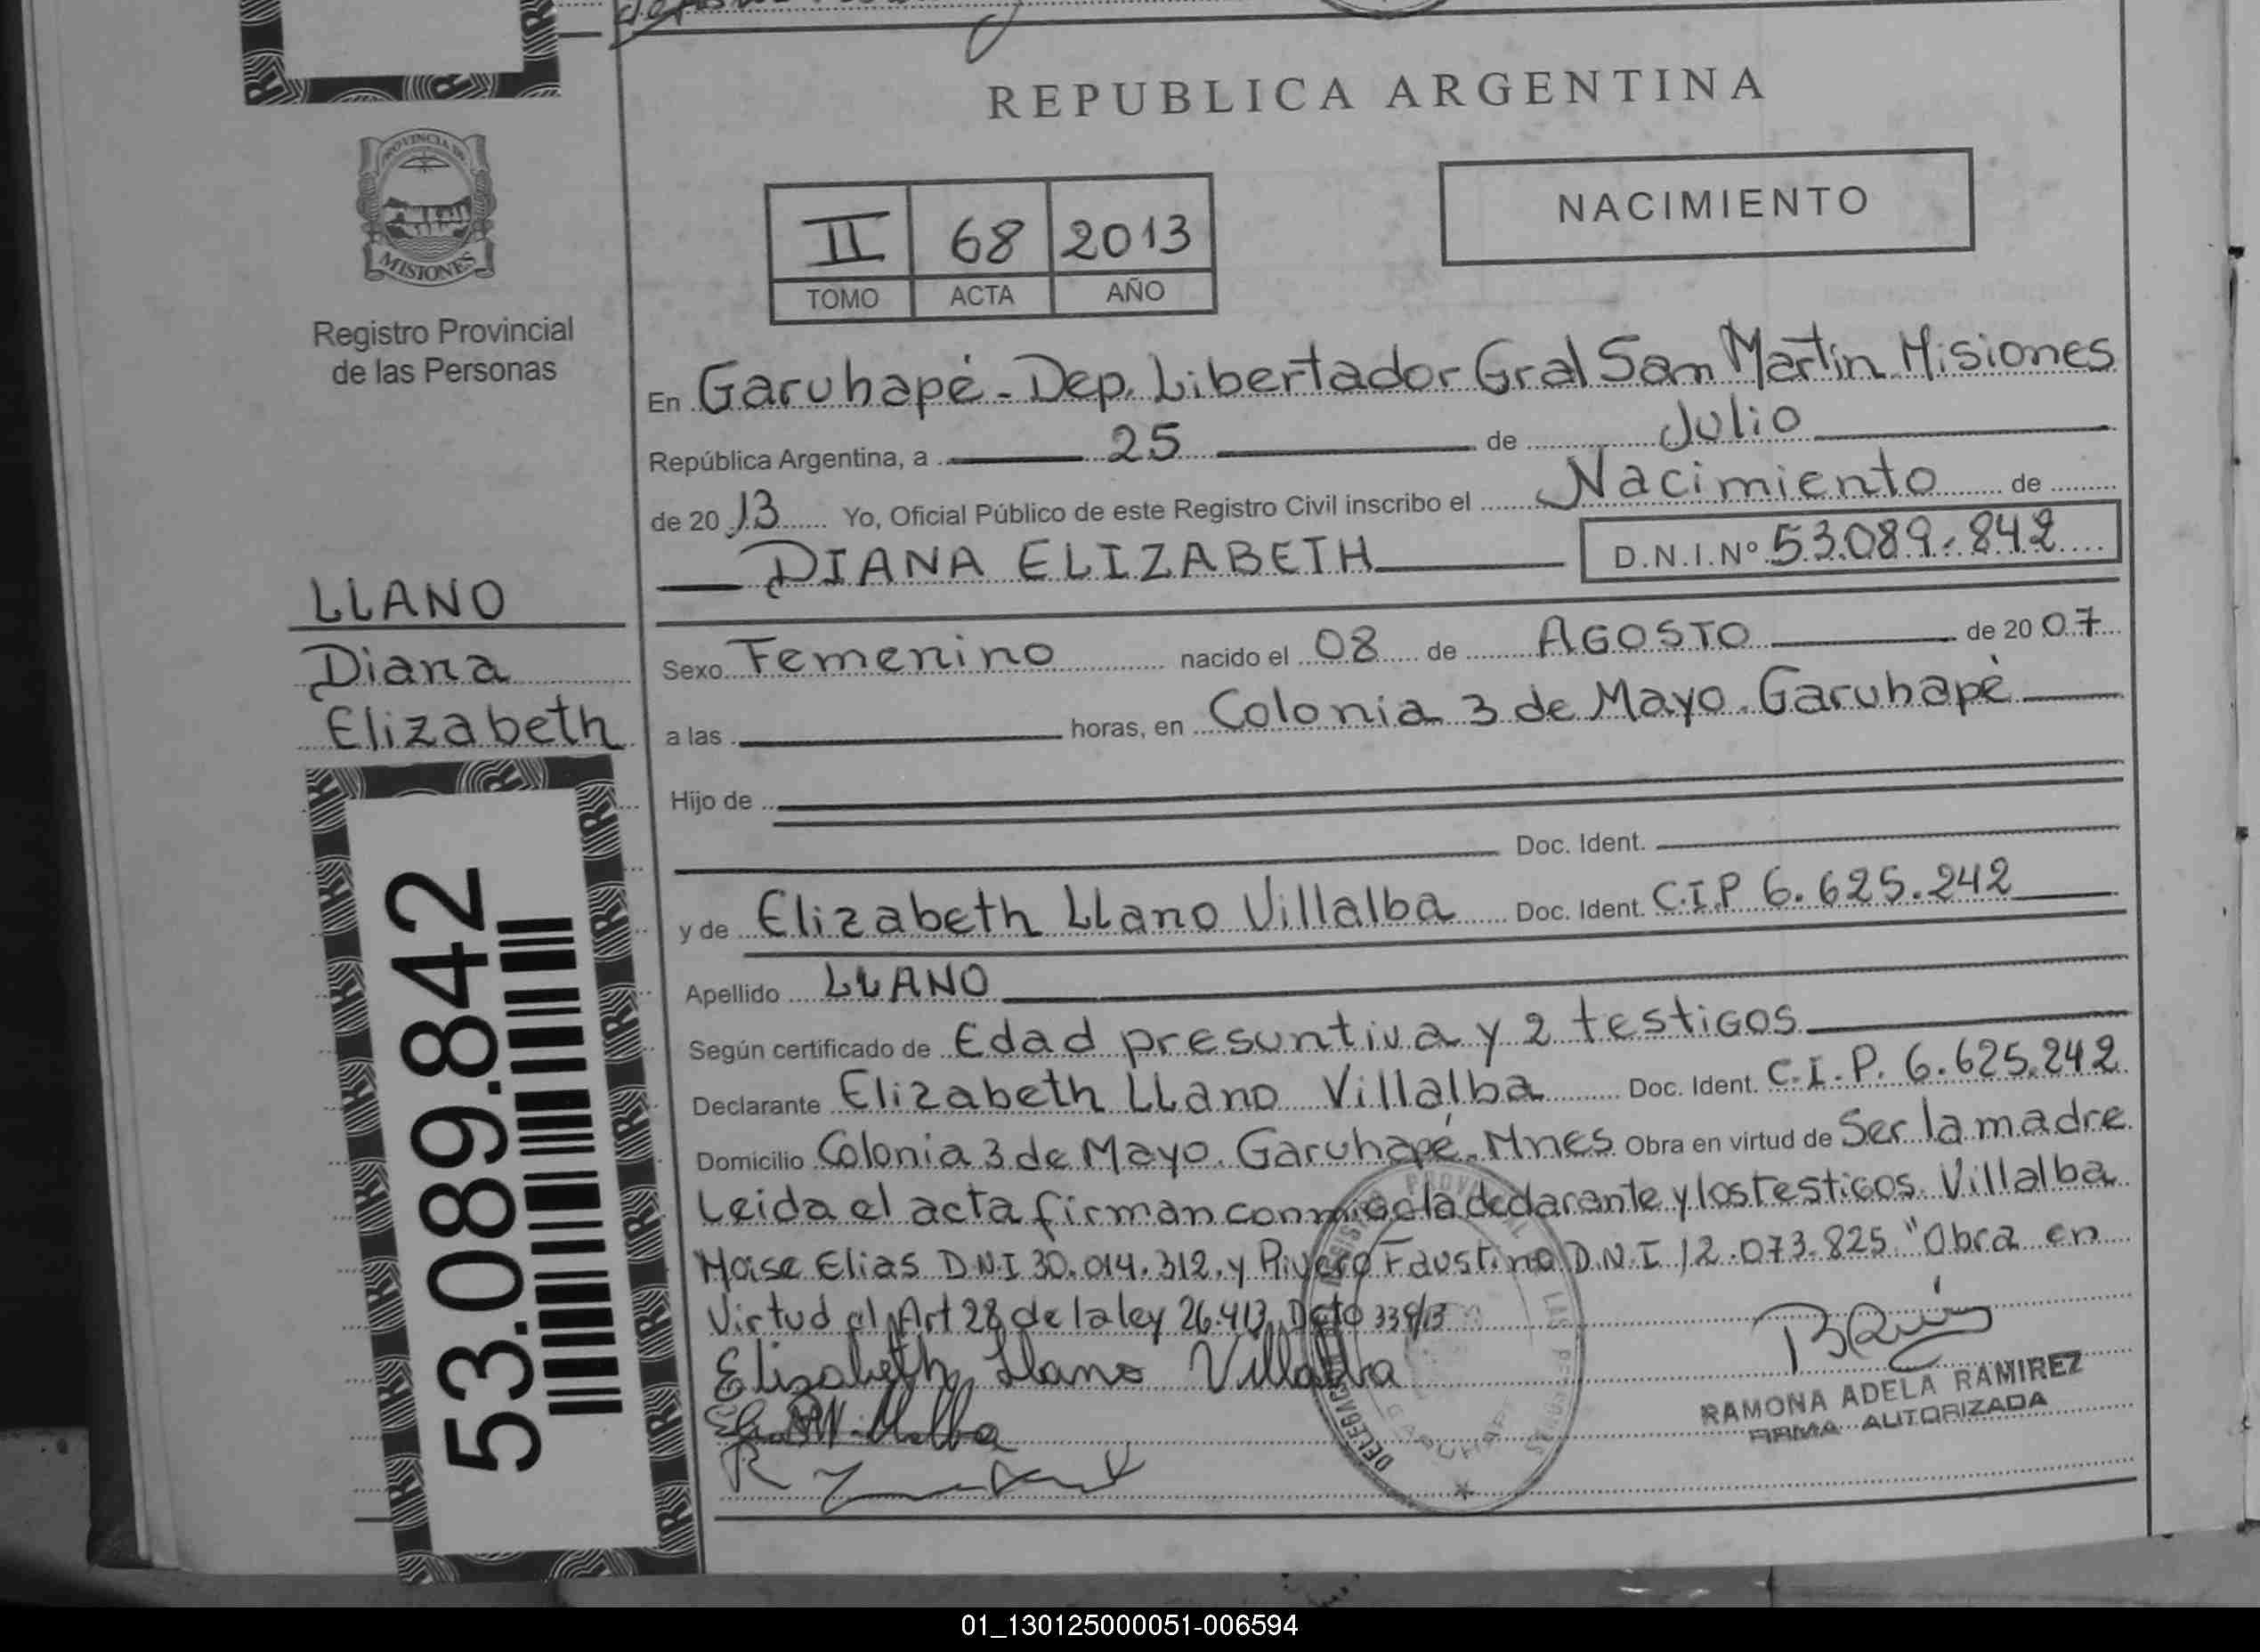 REPUBLICA ARGENTINA
PROVINCIA DE
MISIONES
Registro Provincial
de las Personas
II 68 2013
TOMO ACTA AÑO
NACIMIENTO
En Garuhapé - Dep. Libertador Gral San Martín Misiones
República Argentina, a 25 de Julio
de 2013 Yo, Oficial Público de este Registro Civil inscribo el Nacimiento de
DIANA ELIZABETH D.N.I.Nº 53.089.842
LLANO
Diana
Elizabeth
Sexo Femenino nacido el 08 de AGOSTO de 2007
a las horas, en Colonia 3 de Mayo. Garuhapé
Hijo de
Doc. Ident.
y de Elizabeth Llano Villalba Doc. Ident. C.I.P 6.625.242
Apellido LLANO
Según certificado de Edad presuntiva y 2 testigos
Declarante Elizabeth Llano Villalba Doc. Ident. C.I.P. 6.625.242
Domicilio Colonia 3 de Mayo. Garuhapé. Mnes Obra en virtud de Ser la madre
Leida el acta firman conmigo la declarante y los testigos. Villalba
Moise Elias D.N.I 30.014.312. y Rivero Faustino D.N.I 12.073.825. "Obra en
Virtud al Art 28 de la ley 26.413. Dcto 339/13
Elizabeth Llano Villalba
Villalba
RAMONA ADELA RAMIREZ
FIRMA AUTORIZADA
53.089.842
01_130125000051-006594